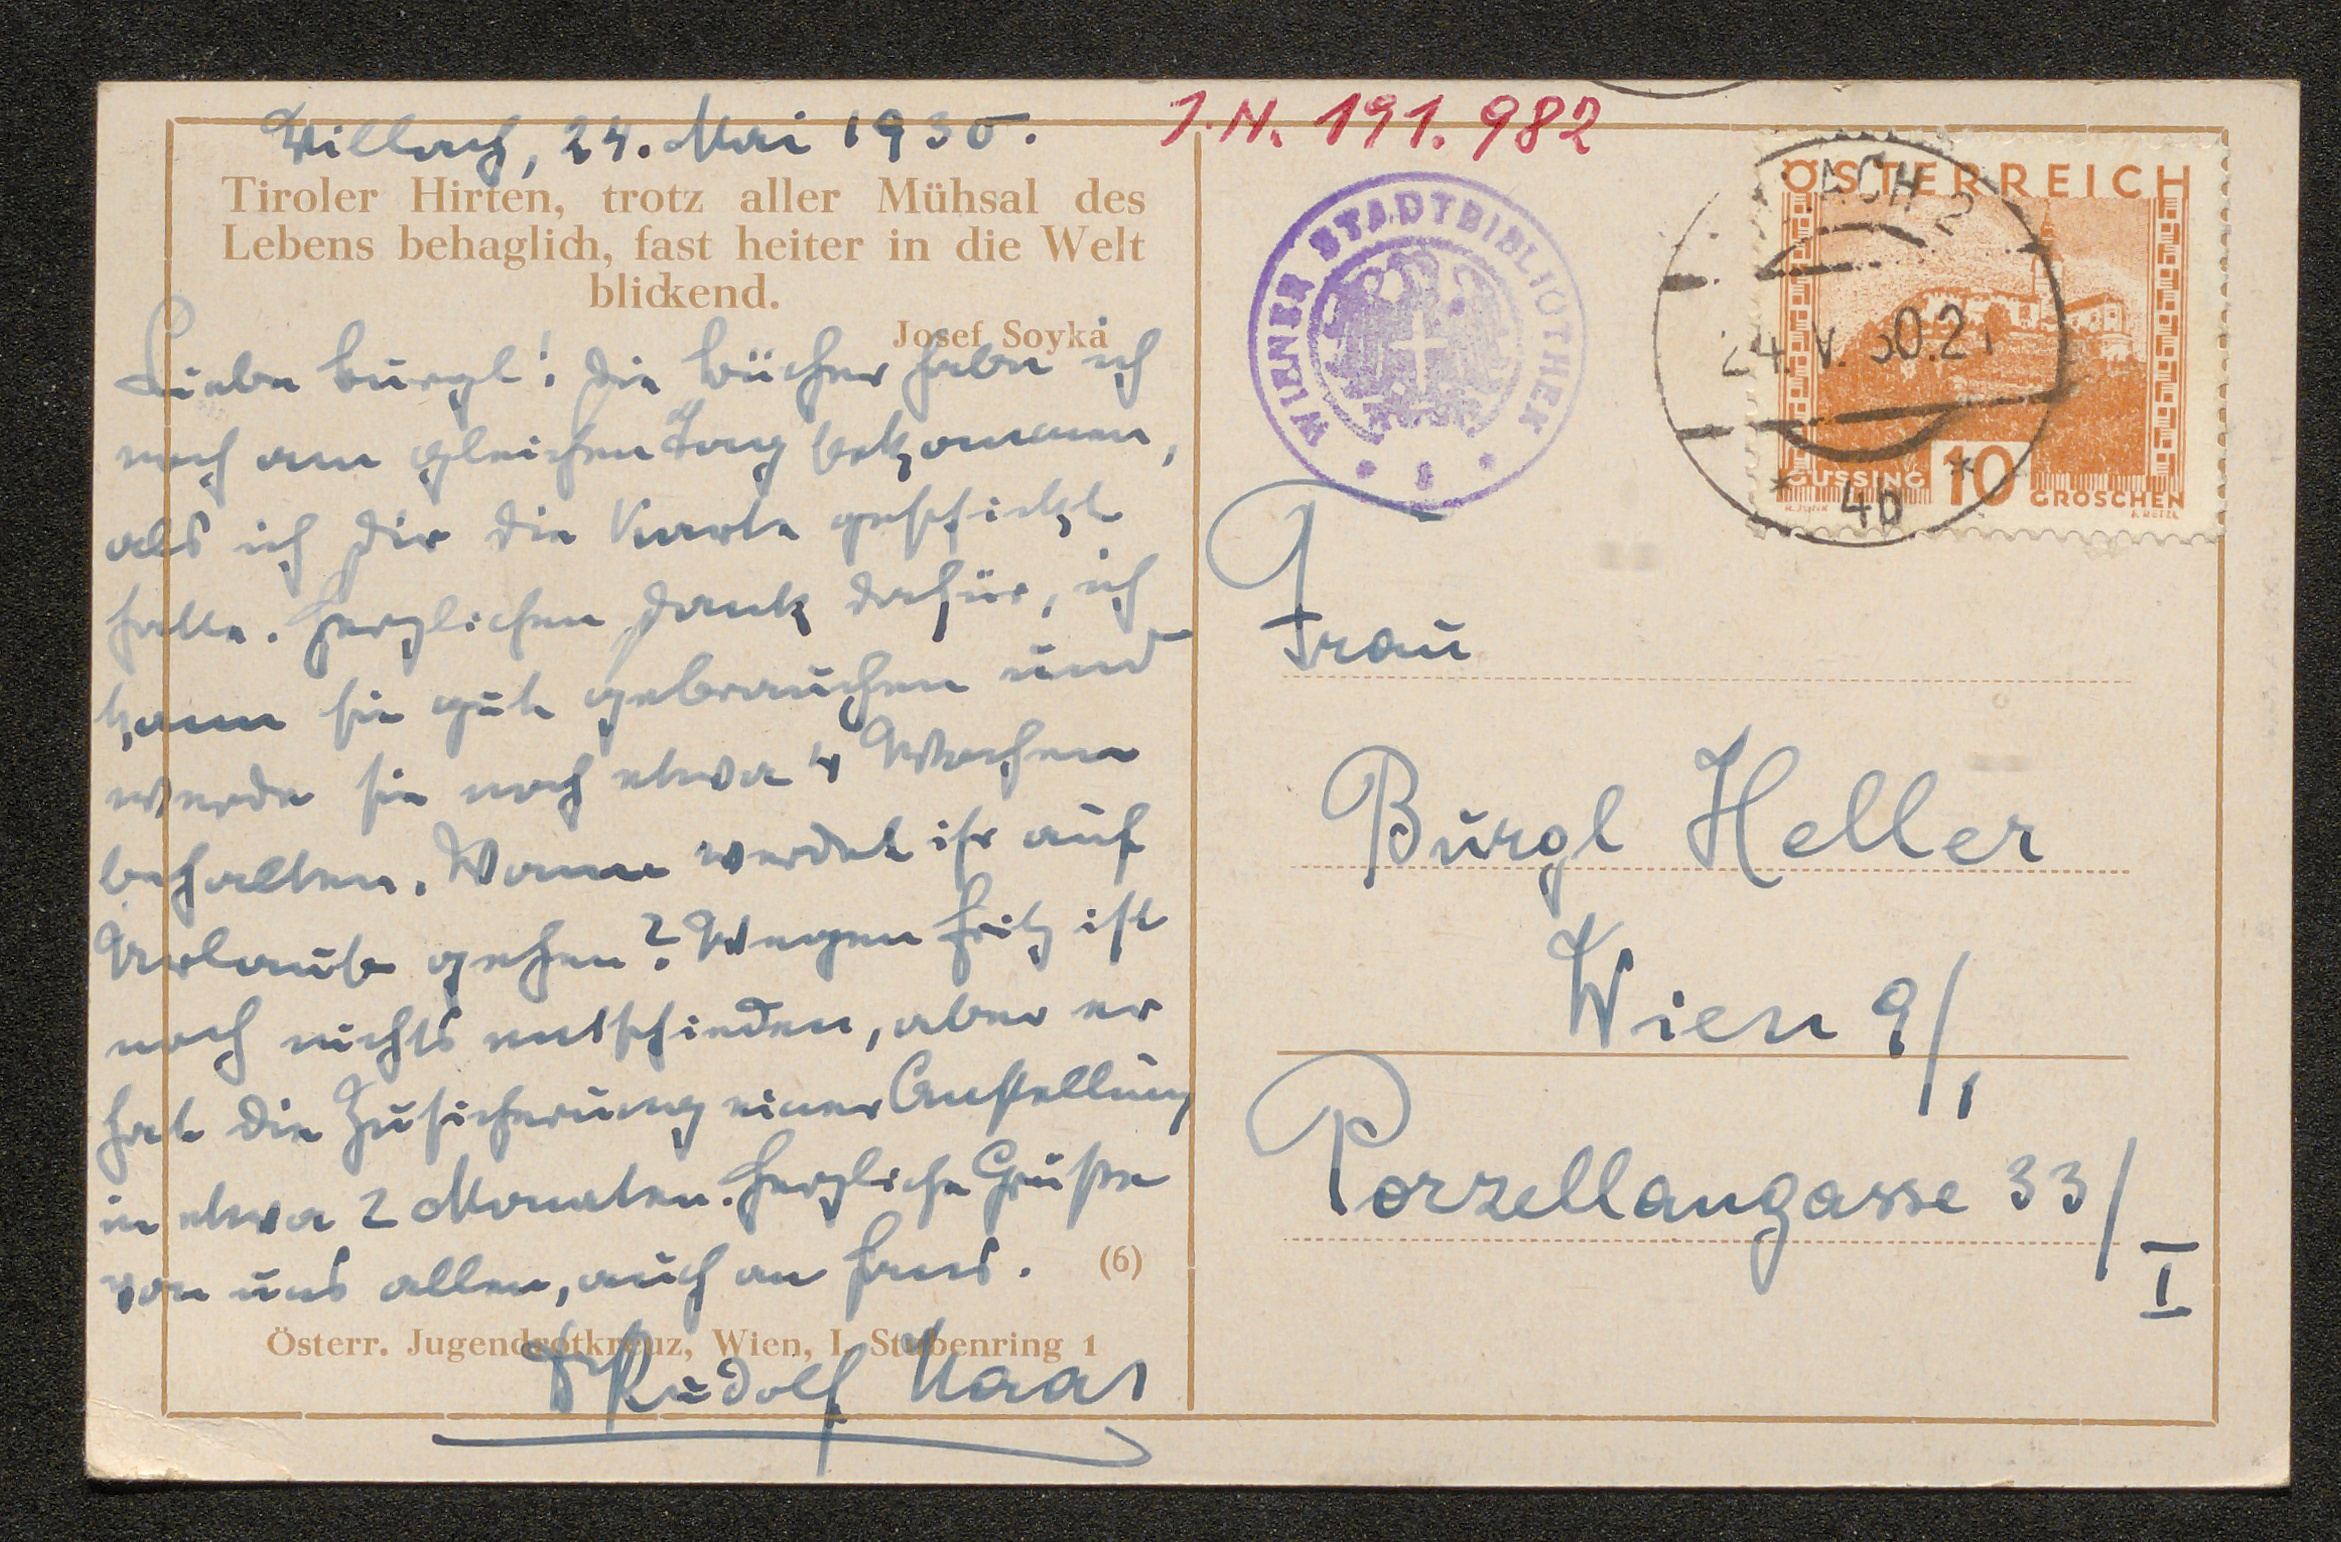 Villach, 24. Mai 1930.
Tiroler Hirten, trotz aller Mühsal des
Lebens behaglich, fast heiter in die Welt
blickend.
Josef Soyka
Liebe Burgl! Die Bücher habe ich
noch am gleichen Tag bekommen,
als ich Dir die Karte geschickt
hatte. Herzlichen Dank dafür, ich
kann sie gut gebrauchen und
werde sie noch etwa 4 Wochen
behalten. Wann werdet ihr auf
Urlaub gehen? Wegen Fritz ist
noch nichts entschieden, aber er
hat die Zusicherung einer Anstellung
in etwa 2 Monaten. Herzliche Grüße
von uns allen, auch an Hans.
(6)
Österr. Jugendrotkreuz, Wien, I. Stubenring 1
Dr Rudolf Haas
J.N. 191.982
WIENER STADTBIBLIOTHEK
ÖSTERREICH
GÜSSING 10 GROSCHEN
ACH 2
24. V. 30.21
* 4b *
Frau
Burgl Heller
Wien 9/1
Porzellangasse 33/I